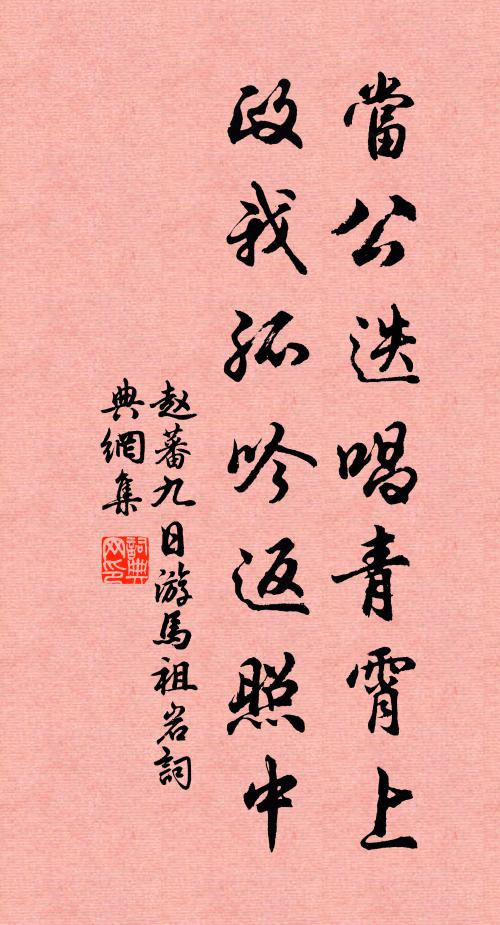 當公迭唱青霄上
政我孤吟返照中
赵蕃九日游馬祖岩詞
典網集
詞典
网印